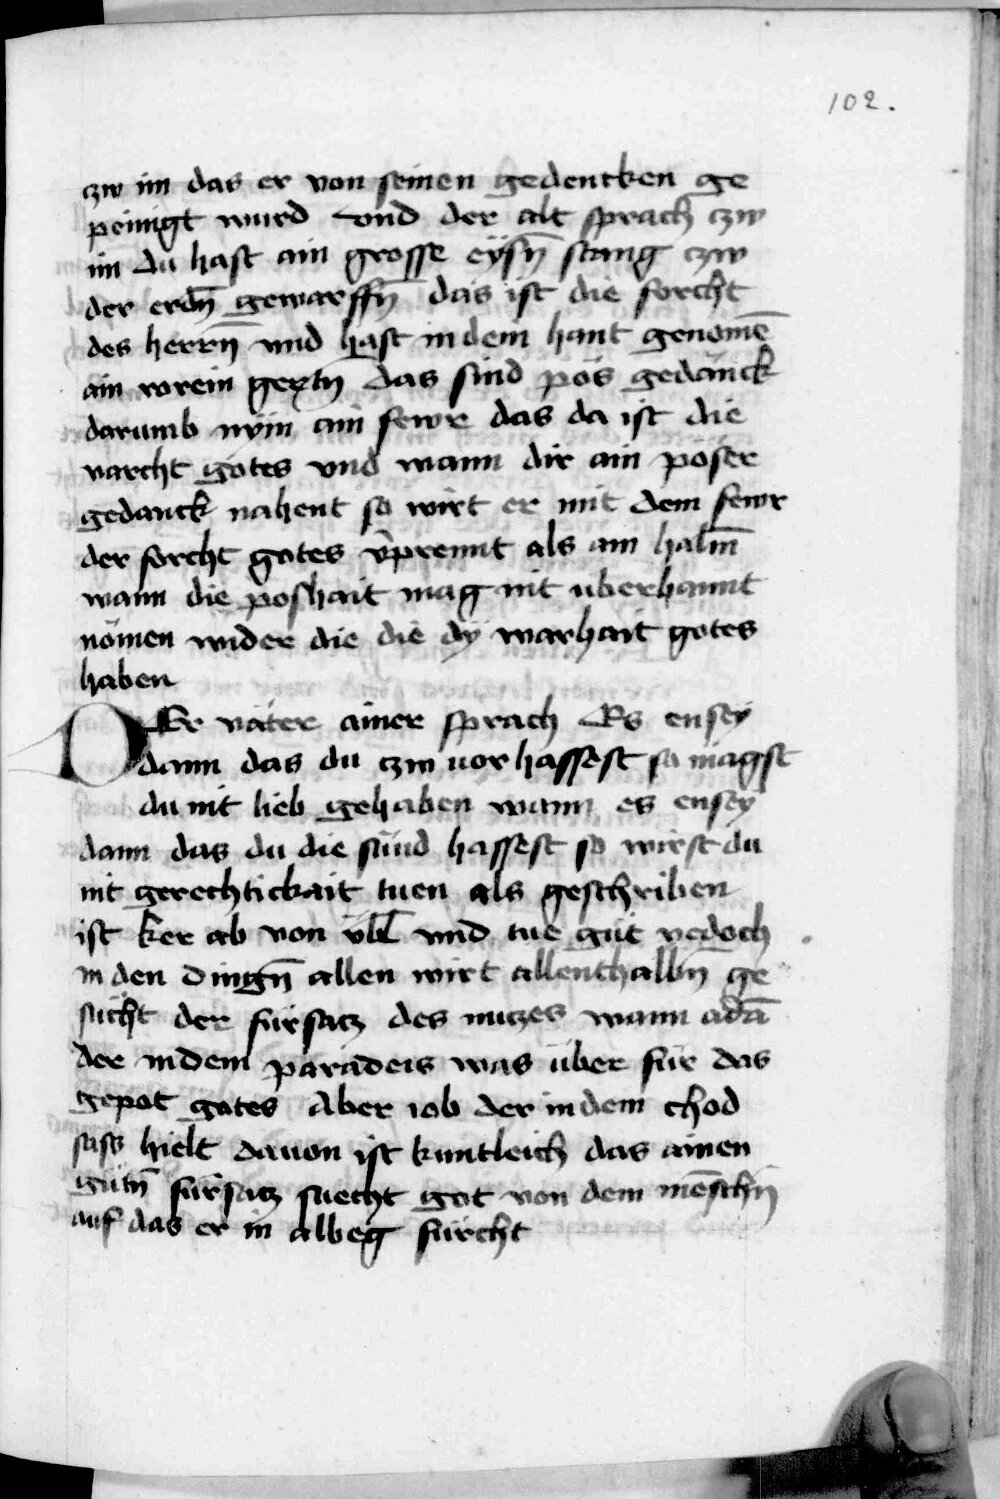 102.
czw im das er von seinen gedencken ge
peinigt wurd vnd der alt sprach czw
im du hast ain grosse eÿsn̄ stang czw
der erdn̄ gewarffn̄ das ist die forcht
des herrn̄ vnd hast in dem hant genomē
ain rorein gertn̄ das sind pös gedänck
darumb nÿm ain fewr das da ist die
varcht gotes vnd wann dir ain poser
gedanck nahent so wirt er mit dem fewr
der forcht gotes v̄prennt als ain halm̄
wann die poshait mag nit uberhannt
nömen wider die die dÿ warhait gotes
haben
DEr väter ainer sprach Es ensey
dann das du czw uor hassest so magst
du nit lieb gehaben wann es ensey
dann das du die sünd hassest so wirst du
nit gerechtickait tuen als geschriben
ist ker ab von vbl vnd tue güt yedoch
in den dingn̄ allen wirt allenthalbn̄ ge
sücht der fürsatz des nuczes wann adā
der in dem paradeis was über für das
gepot gotes Aber iob der in dem chod
sass hielt dauon ist kuntleich das ainen
gütn̄ fürsatz suecht got von dem mēschn̄
auf das er in albeg fürcht